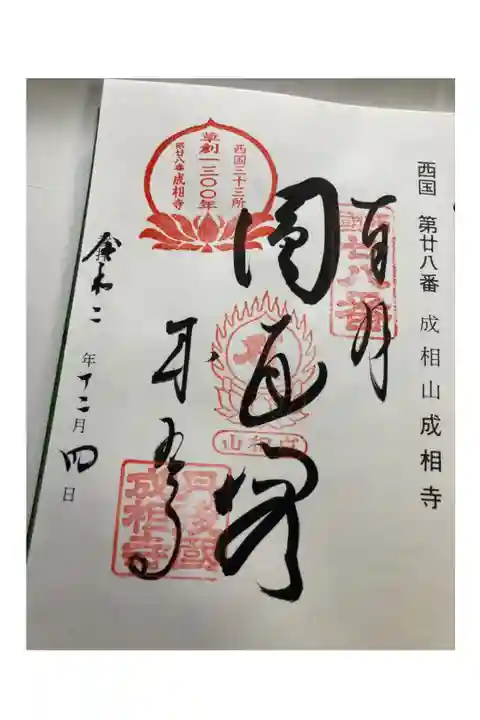 西国 第廿八番 成相山成相寺
西国
廿八番
奉拝
圓通閣
成相山
西国三十三所
草創一三〇〇年
第廿八番 成相寺
成相寺
丹後國
成相寺
令和二年十二月四日